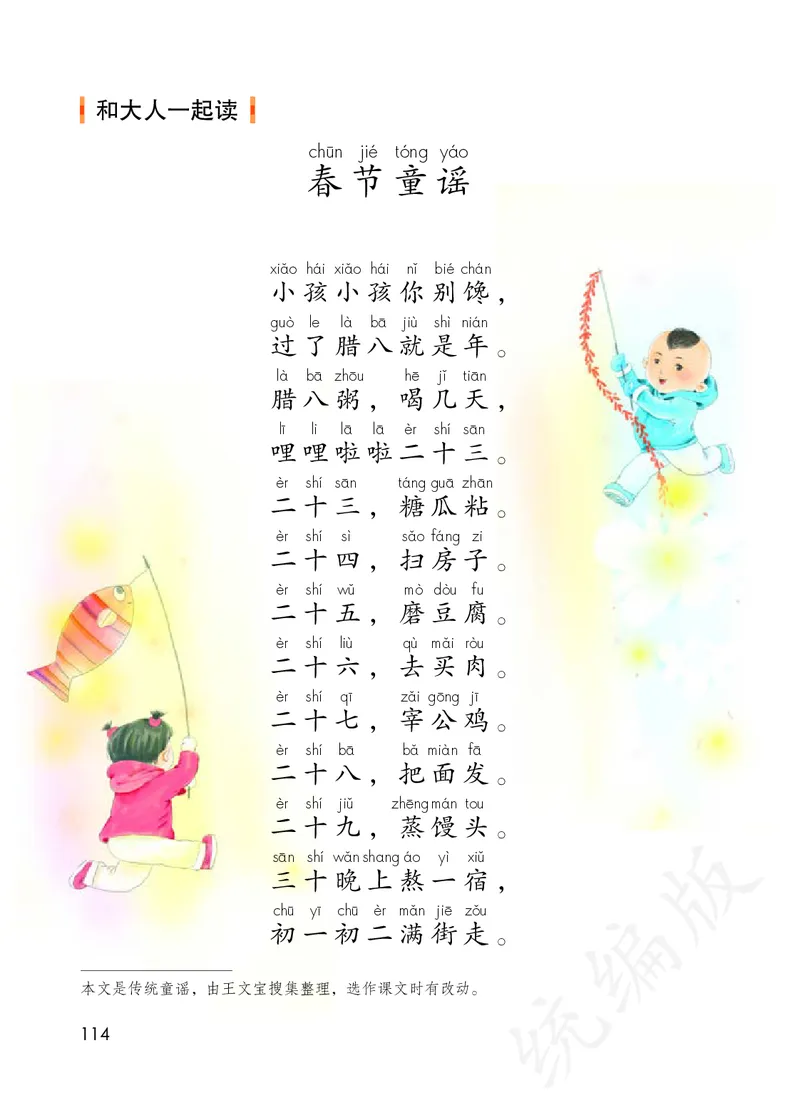 和大人一起读
chūn jié tóng yáo
春节童谣
xiǎo hái xiǎo hái nǐ bié chán
小孩小孩你别馋，
guò le là bā jiù shì nián
过了腊八就是年。
là bā zhōu hē jǐ tiān
腊八粥，喝几天，
lī li lā lā èr shí sān
哩哩啦啦二十三。
èr shí sān táng guā zhān
二十三，糖瓜粘。
èr shí sì sǎo fáng zi
二十四，扫房子。
èr shí wǔ mò dòu fu
二十五，磨豆腐。
èr shí liù qù mǎi ròu
二十六，去买肉。
èr shí qī zǎi gōng jī
二十七，宰公鸡。
èr shí bā bǎ miàn fā
二十八，把面发。
èr shí jiǔ zhēng mán tou
二十九，蒸馒头。
sān shí wǎn shang áo yì xiǔ
三十晚上熬一宿，
chū yī chū èr mǎn jiē zǒu
初一初二满街走。
本文是传统童谣，由王文宝搜集整理，选作课文时有改动。
114
统编版